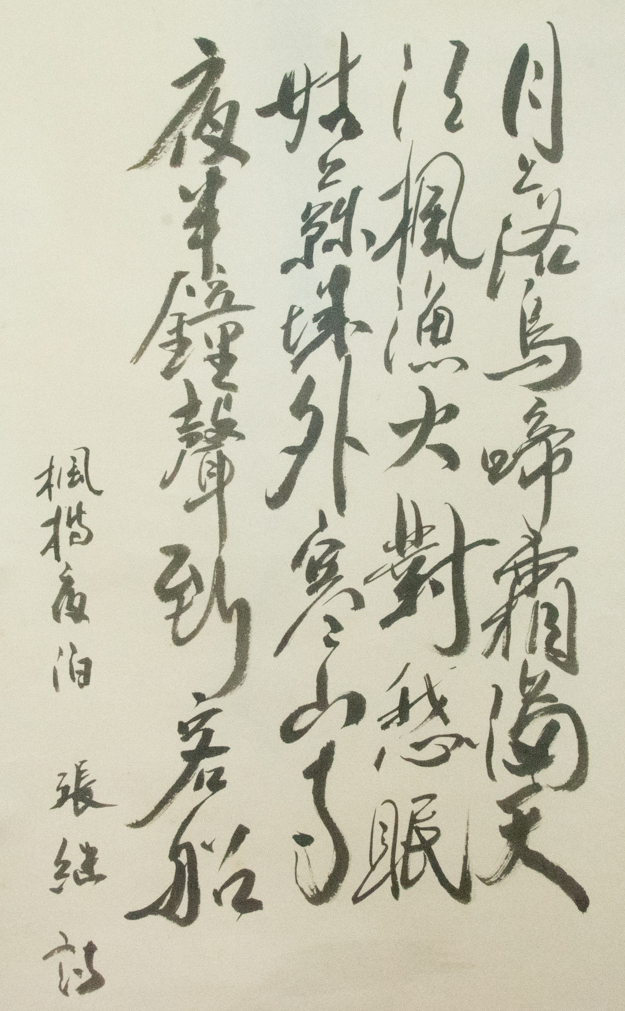 月落烏啼霜滿天
江楓漁火對愁眠
姑蘇城外寒山寺
夜半鐘聲到客船
楓橋夜泊 張継詩